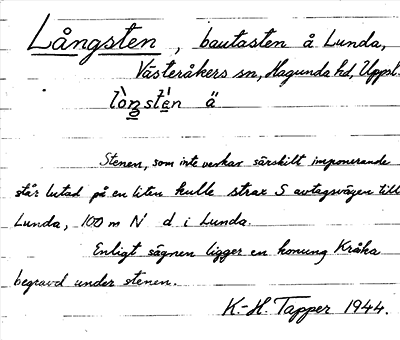 Långsten, bautasten å Lunda,
Västeråkers sn, Hagunda hd, Uppl.
Stenen, som inte verkar särskilt imponerande
står lutad på en liten kulle strax S avtagsvägen till
Lunda, 100 m N d i Lunda.
Enligt sägnen ligger en konung Kråka
begravd under stenen.
K.-H. Tapper 1944.